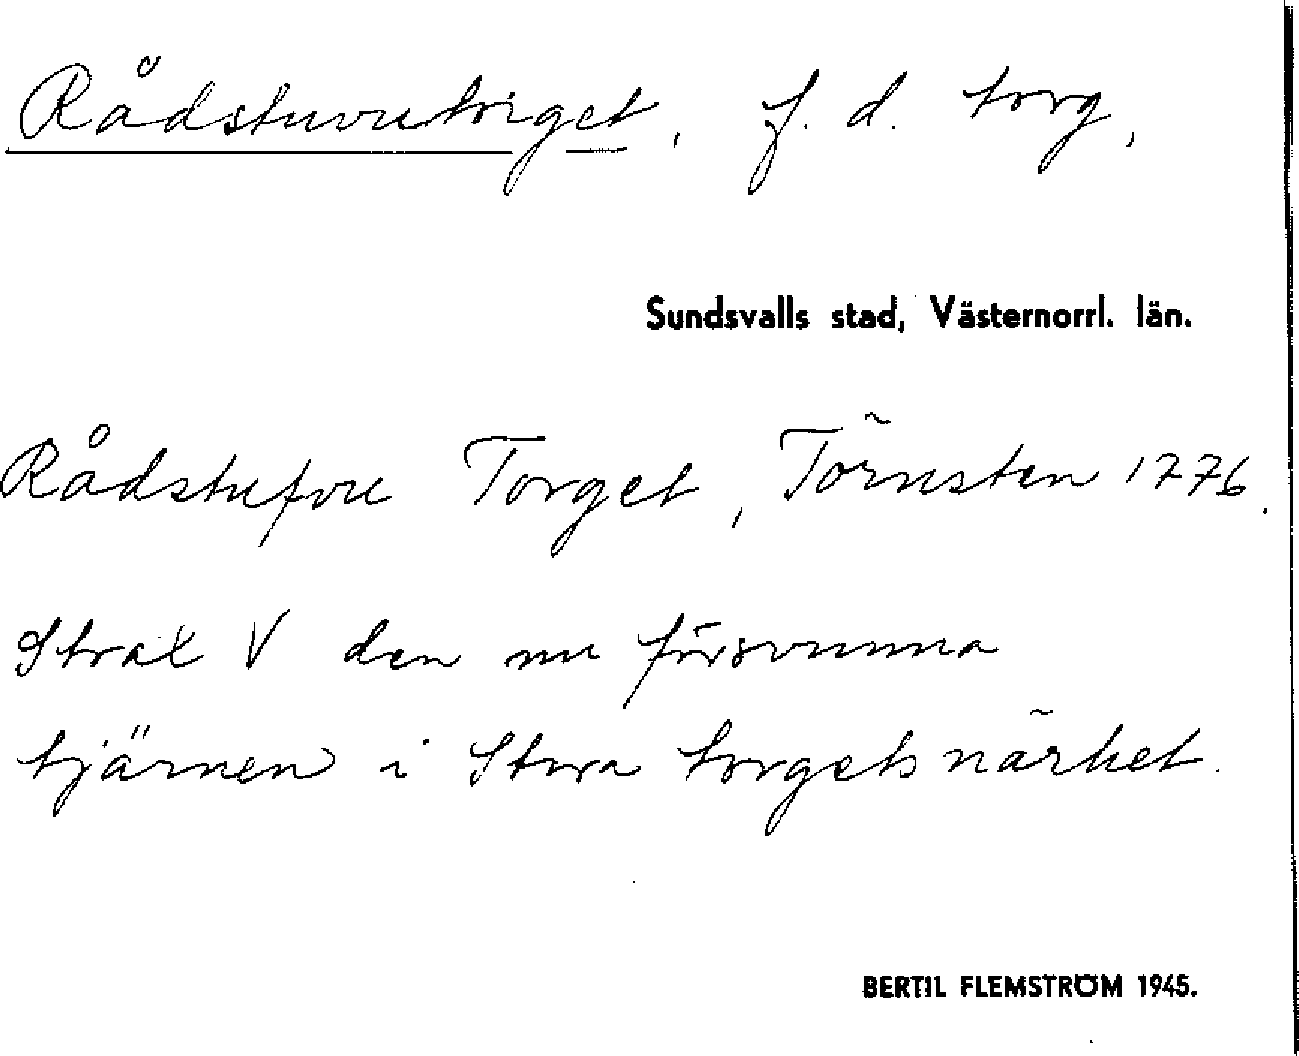 Rådstuvutorget, f. d. torg,
Sundsvalls stad, Västernorrl. län.
Rådstufvu Torget, Törnsten 1776.
Strax V den nu försvunna
tjärnen i Stora torgets närhet.
BERTIL FLEMSTRÖM 1945.